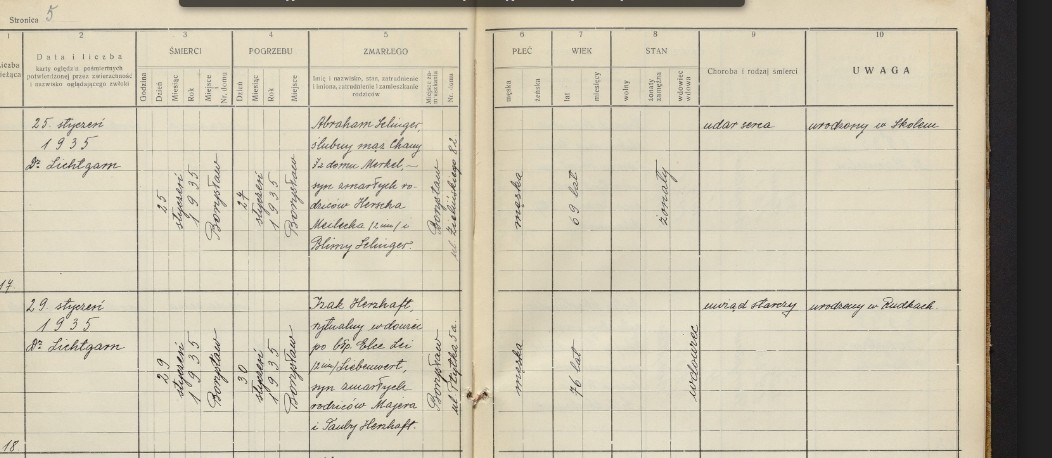 Stronica 5
1 2 3 4 5 6 7 8 9 10
Data i liczba
karty oględzin pośmiertnych
potwierdzonej przez zwierzchność
i nazwisko oglądającego zwłoki
ŚMIERCI
Godzina
Dzień
Miesiąc
Rok
Miejsce i Nr. domu
POGRZEBU
Dzień
Miesiąc
Rok
Miejsce
ZMARŁEGO
Imię i nazwisko, stan, zatrudnienie
i imiona, zatrudnienie i zamieszkanie
rodziców
Nr. domu
PŁEĆ
męska
żeńska
WIEK
lat
miesięcy
STAN
wolny
żonaty
zamężna
wdowiec
wdowa
Choroba i rodzaj śmierci
UWAGA
25. styczeń
1935
Dr. Lichtgarn
25
styczeń
1935
Borysław
27
styczeń
1935
Borysław
Abraham Selinger,
ślubny mąż Chany
z domu Merkel, –
syn zmarłych ro-
dziców Herscha
Meilecha /2 im/ i
Blimy Selinger.
Borysław
ul. Zielińskiego 82
męska
69 lat
żonaty
udar serca
urodzony w Skolem
17
29. styczeń
1935
Dr. Lichtgarn
29
styczeń
1935
Borysław
30
styczeń
1935
Borysław
Izak Herzhaft,
rytualny wdowiec
po błp. Elce Lei
/2 im/ Liebenwert,
syn zmarłych
rodziców Majera
i Tauby Herzhaft.
Borysław
męska
76 lat
wdowiec
uwiąd starczy
urodzony w Rudkach.
18